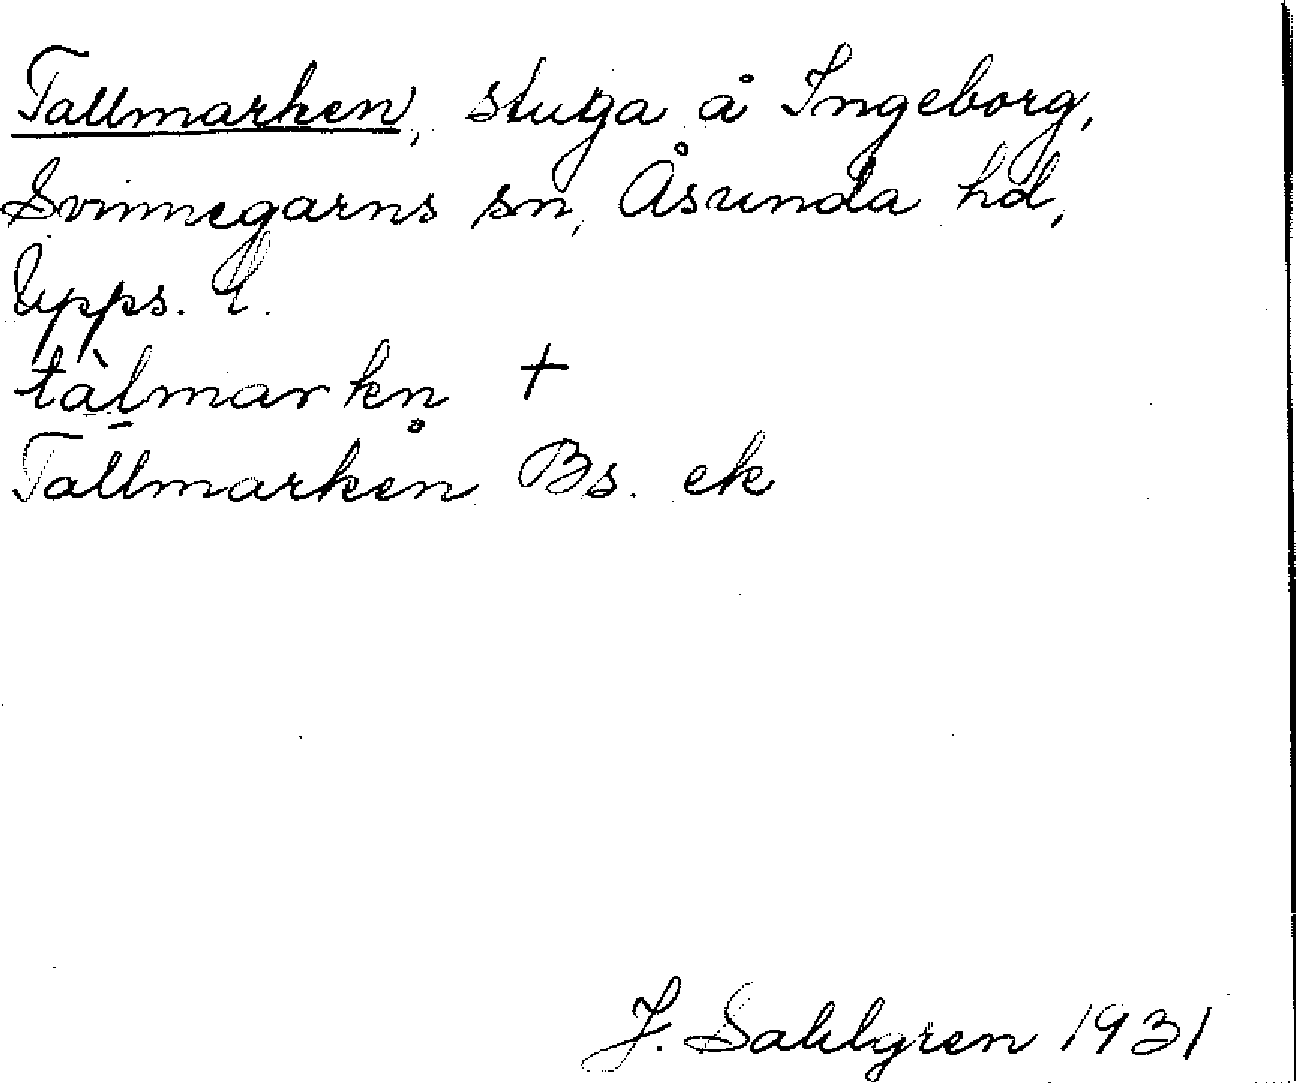 Tallmarken, stuga å Ingeborg,
Svinnegarns sn, Åsunda hd,
Upps. l.
tàl̠markn̥ +
Tallmarken Bs. ek
J. Sahlgren 1931